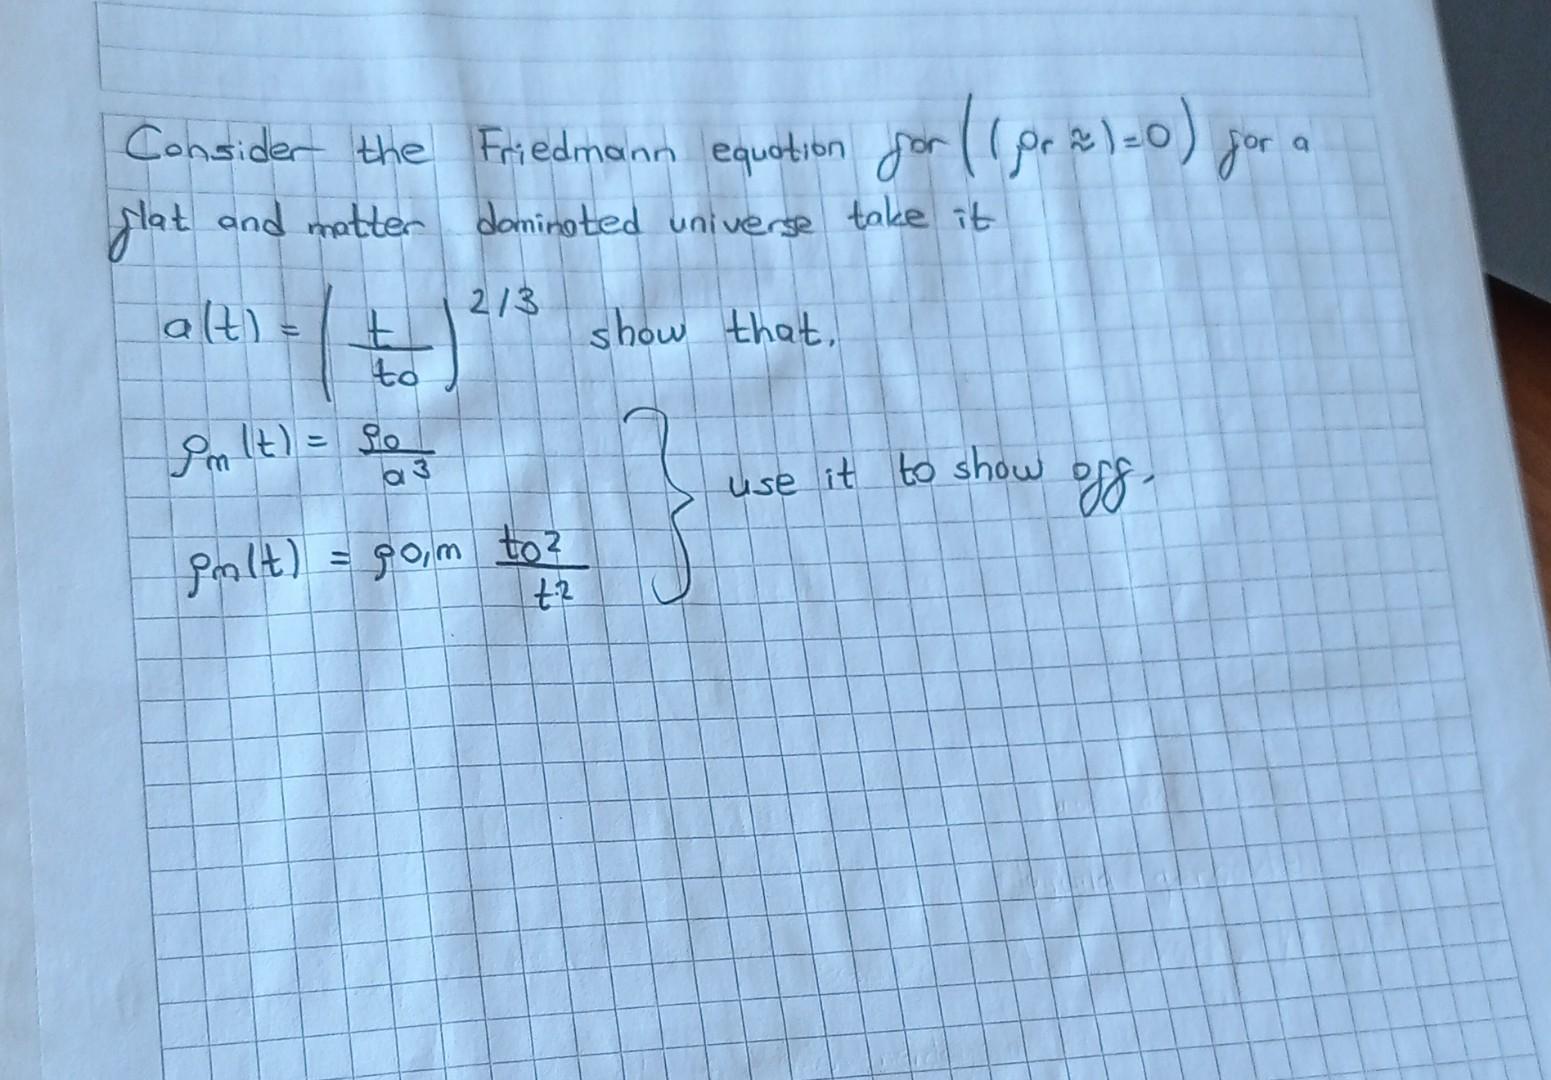 Consider the Friedmann equation for ((ρr ≈)=0) for a
flat and matter dominated universe take it
a(t) = (t/t0)^2/3 show that,
ρm(t) = ρ0/a^3
use it to show off.
ρm(t) = ρ0,m t0^2/t^2